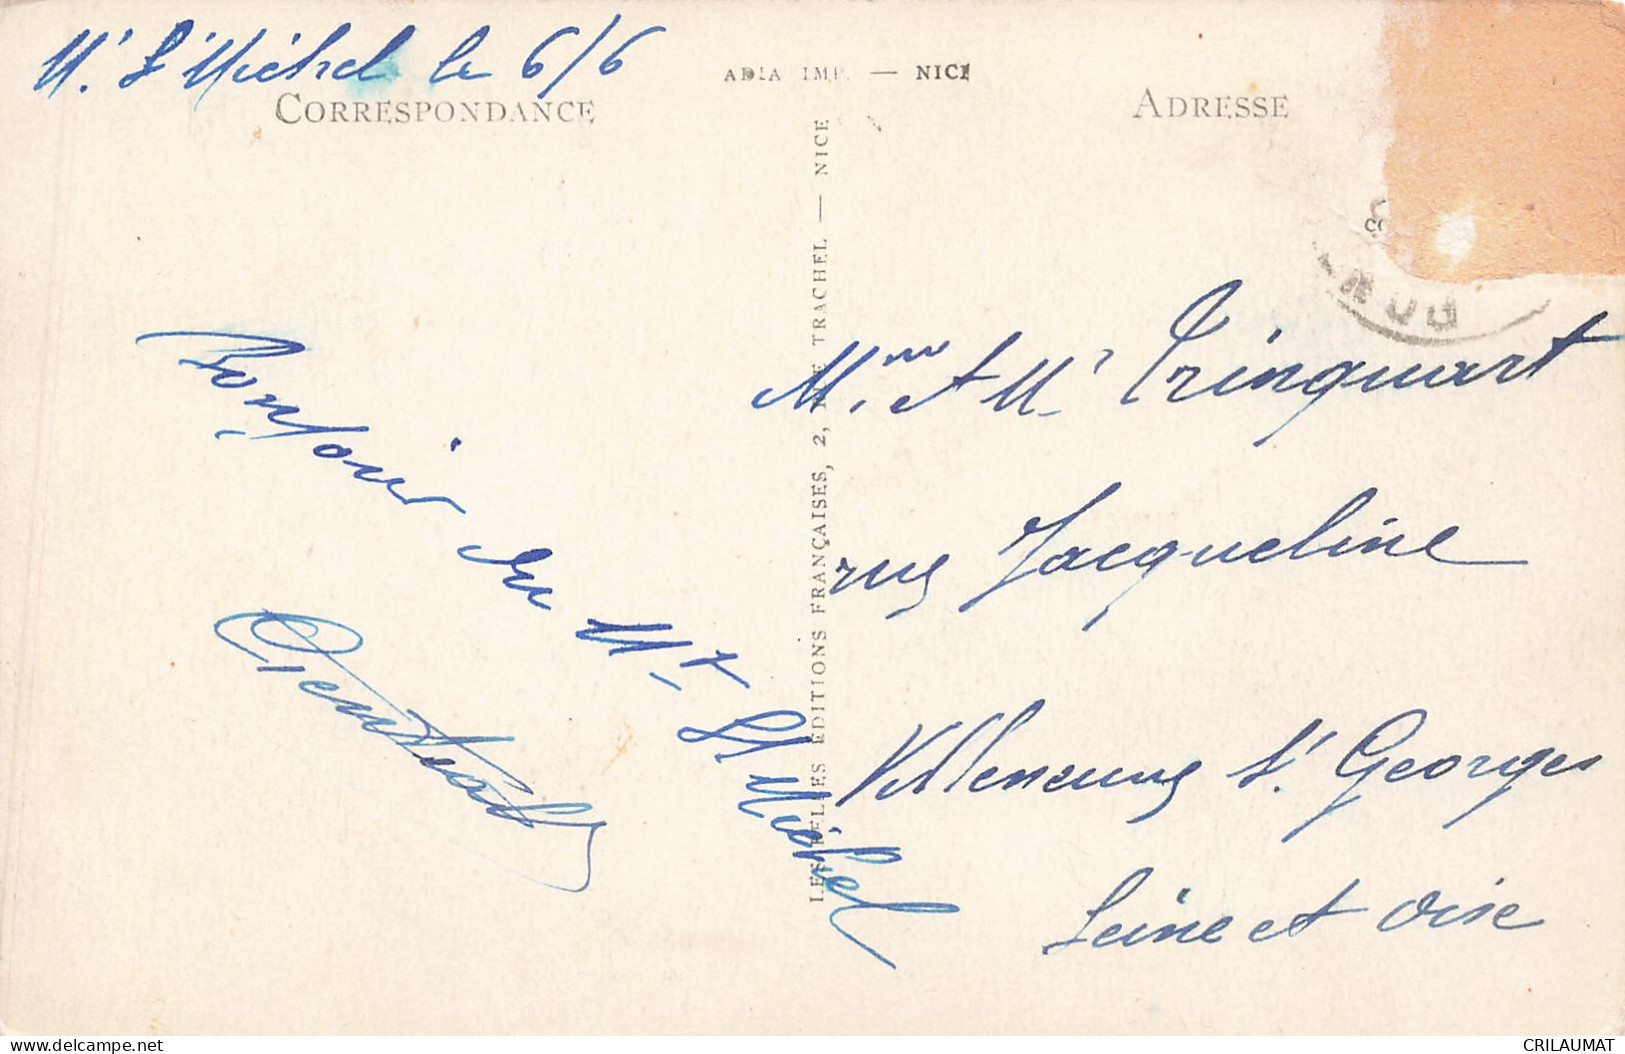 Mt St Michel le 6/6
ADIA IMP. — NICE
CORRESPONDANCE
ADRESSE
LES BELLES EDITIONS FRANÇAISES, 2, RUE TRACHEL — NICE
Bonjour du Mt St Michel
Mme et Mr Trinquart
rue Jacqueline
Villeneuve St Georges
Seine et Oise
delcampe.net
CRILAUMAT